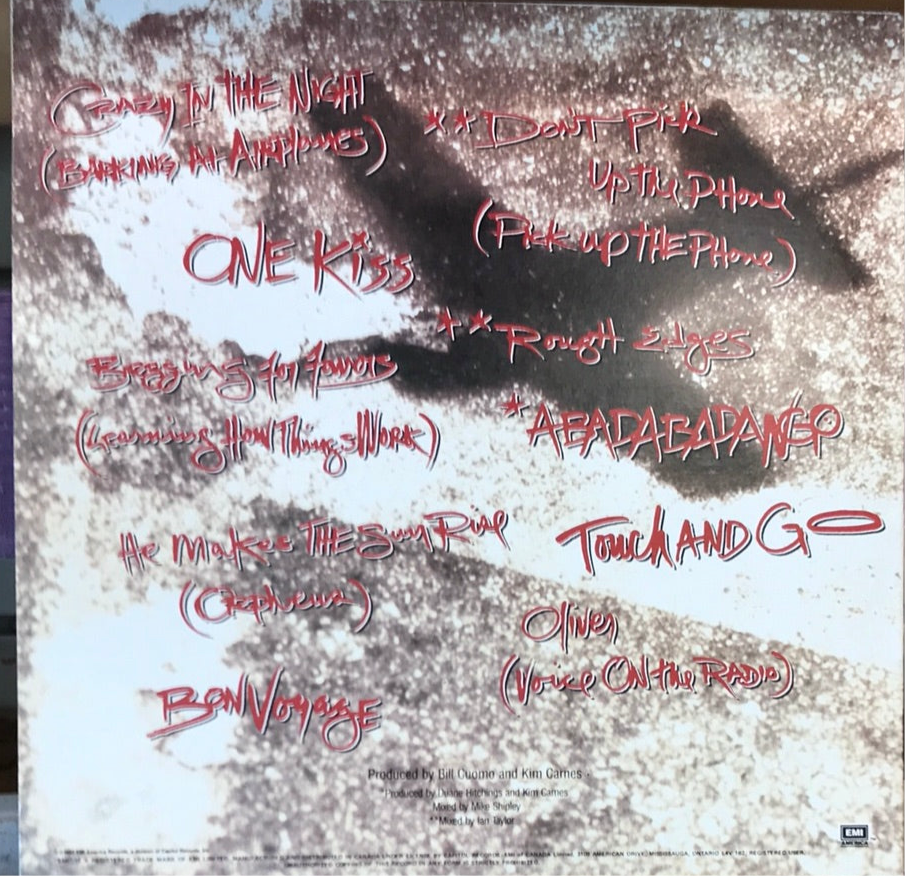 CRAZY IN THE NIGHT
(BARKING At AIRPlanes)
ONE Kiss
Begging for Favors
(Learning How Things Work)
He Makes THE Sun Rise
(Orpheus)
BON Voyage
**Don't Pick
Up the PHone
(Pick up THE PHone)
**Rough Edges
*ABADABADANGO
Touch AND GO
Oliver
(Voice ON the RADIO)
Produced by Bill Cuomo and Kim Carnes
*Produced by Duane Hitchings and Kim Carnes
Mixed by Mike Shipley
**Mixed by Ian Taylor
EMI
AMERICA